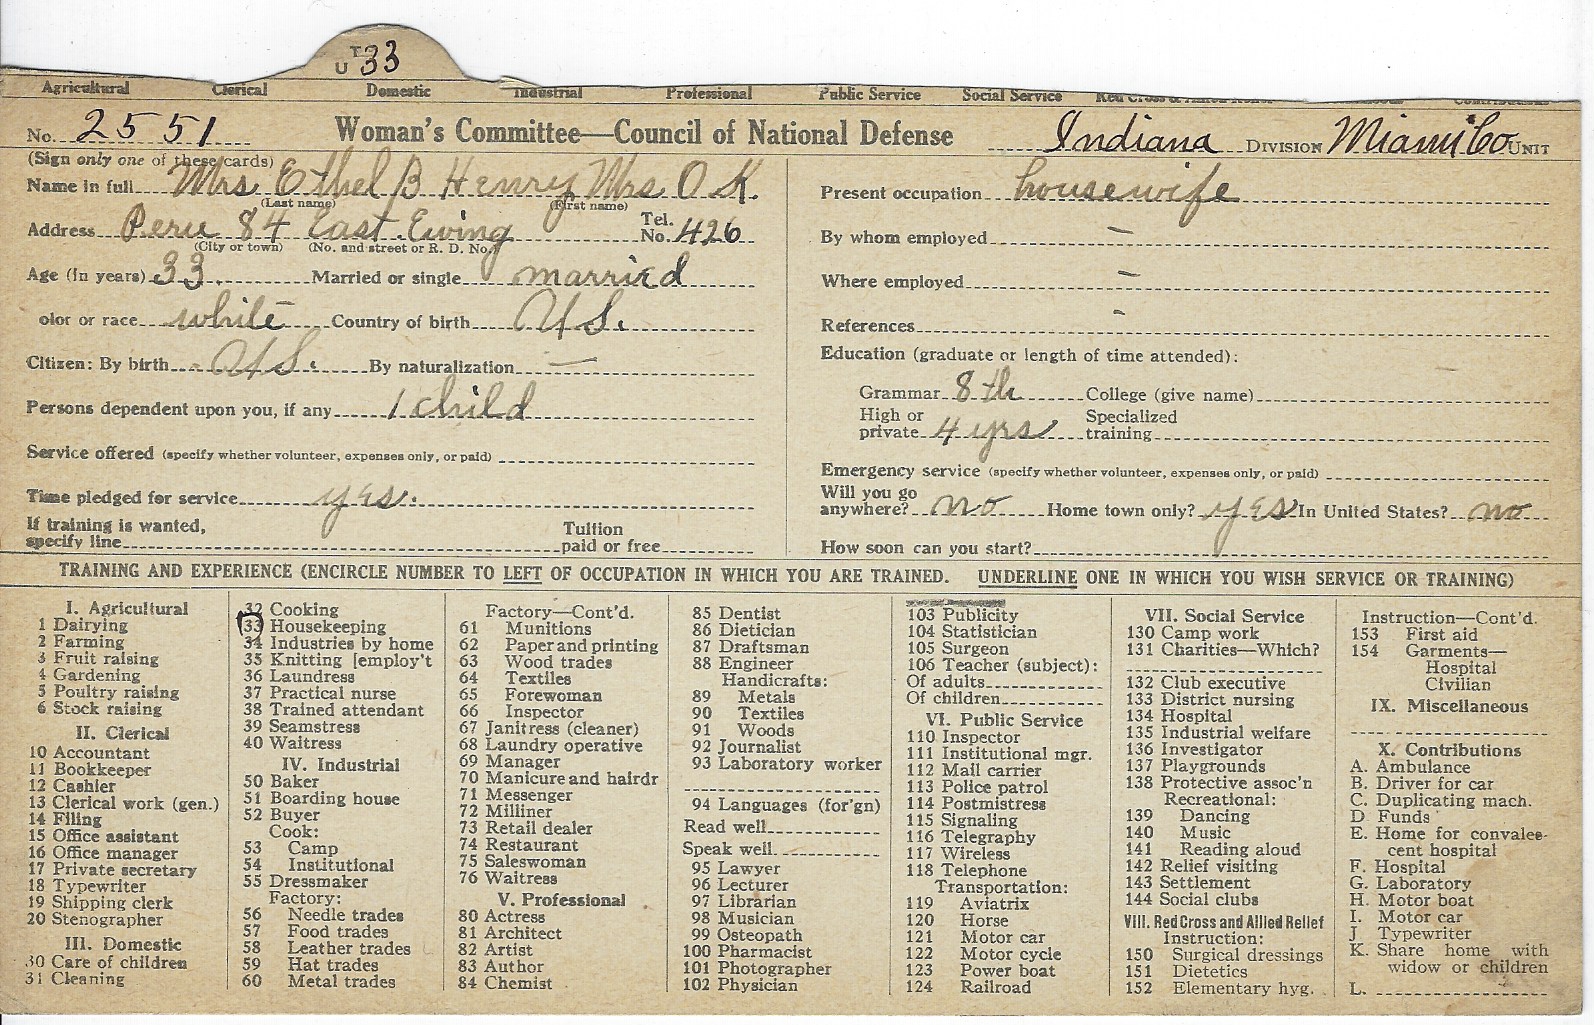 T
U 33
Agricultural Clerical Domestic Industrial Professional Public Service Social Service Red Cross & Allied Relief
No. 2551 Woman's Committee—Council of National Defense Indiana DIVISION Miami Co UNIT
(Sign only one of these cards)
Name in full Mrs Ethel B Henry Mrs O K.
(Last name) (First name)
Address Peru 84 East Ewing Tel. No. 426
(City or town) (No. and street or R. D. No.)
Age (In years) 33. Married or single married
olor or race white Country of birth U S.
Citizen: By birth U S. By naturalization —
Persons dependent upon you, if any 1 child
Service offered (specify whether volunteer, expenses only, or paid)
Time pledged for service yes.
If training is wanted,
specify line Tuition paid or free
Present occupation housewife
By whom employed —
Where employed —
References -
Education (graduate or length of time attended):
Grammar 8th College (give name)
High or private 4 yrs Specialized training
Emergency service (specify whether volunteer, expenses only, or paid)
Will you go
anywhere? no Home town only? yes In United States? no
How soon can you start?
TRAINING AND EXPERIENCE (ENCIRCLE NUMBER TO LEFT OF OCCUPATION IN WHICH YOU ARE TRAINED. UNDERLINE ONE IN WHICH YOU WISH SERVICE OR TRAINING)
I. Agricultural
1 Dairying
2 Farming
3 Fruit raising
4 Gardening
5 Poultry raising
6 Stock raising
II. Clerical
10 Accountant
11 Bookkeeper
12 Cashier
13 Clerical work (gen.)
14 Filing
15 Office assistant
16 Office manager
17 Private secretary
18 Typewriter
19 Shipping clerk
20 Stenographer
III. Domestic
30 Care of children
31 Cleaning
32 Cooking
33 Housekeeping
34 Industries by home
35 Knitting [employ't
36 Laundress
37 Practical nurse
38 Trained attendant
39 Seamstress
40 Waitress
IV. Industrial
50 Baker
51 Boarding house
52 Buyer
Cook:
53 Camp
54 Institutional
55 Dressmaker
Factory:
56 Needle trades
57 Food trades
58 Leather trades
59 Hat trades
60 Metal trades
Factory—Cont'd.
61 Munitions
62 Paper and printing
63 Wood trades
64 Textiles
65 Forewoman
66 Inspector
67 Janitress (cleaner)
68 Laundry operative
69 Manager
70 Manicure and hairdr
71 Messenger
72 Milliner
73 Retail dealer
74 Restaurant
75 Saleswoman
76 Waitress
V. Professional
80 Actress
81 Architect
82 Artist
83 Author
84 Chemist
85 Dentist
86 Dietician
87 Draftsman
88 Engineer
Handicrafts:
89 Metals
90 Textiles
91 Woods
92 Journalist
93 Laboratory worker
94 Languages (for'gn)
Read well
Speak well
95 Lawyer
96 Lecturer
97 Librarian
98 Musician
99 Osteopath
100 Pharmacist
101 Photographer
102 Physician
103 Publicity
104 Statistician
105 Surgeon
106 Teacher (subject):
Of adults
Of children
VI. Public Service
110 Inspector
111 Institutional mgr.
112 Mail carrier
113 Police patrol
114 Postmistress
115 Signaling
116 Telegraphy
117 Wireless
118 Telephone
Transportation:
119 Aviatrix
120 Horse
121 Motor car
122 Motor cycle
123 Power boat
124 Railroad
VII. Social Service
130 Camp work
131 Charities—Which?
132 Club executive
133 District nursing
134 Hospital
135 Industrial welfare
136 Investigator
137 Playgrounds
138 Protective assoc'n
Recreational:
139 Dancing
140 Music
141 Reading aloud
142 Relief visiting
143 Settlement
144 Social clubs
VIII. Red Cross and Allied Relief
Instruction:
150 Surgical dressings
151 Dietetics
152 Elementary hyg.
Instruction—Cont'd.
153 First aid
154 Garments—
Hospital
Civilian
IX. Miscellaneous
X. Contributions
A. Ambulance
B. Driver for car
C. Duplicating mach.
D Funds
E. Home for convales-
cent hospital
F. Hospital
G. Laboratory
H. Motor boat
I. Motor car
J. Typewriter
K. Share home with
widow or children
L.